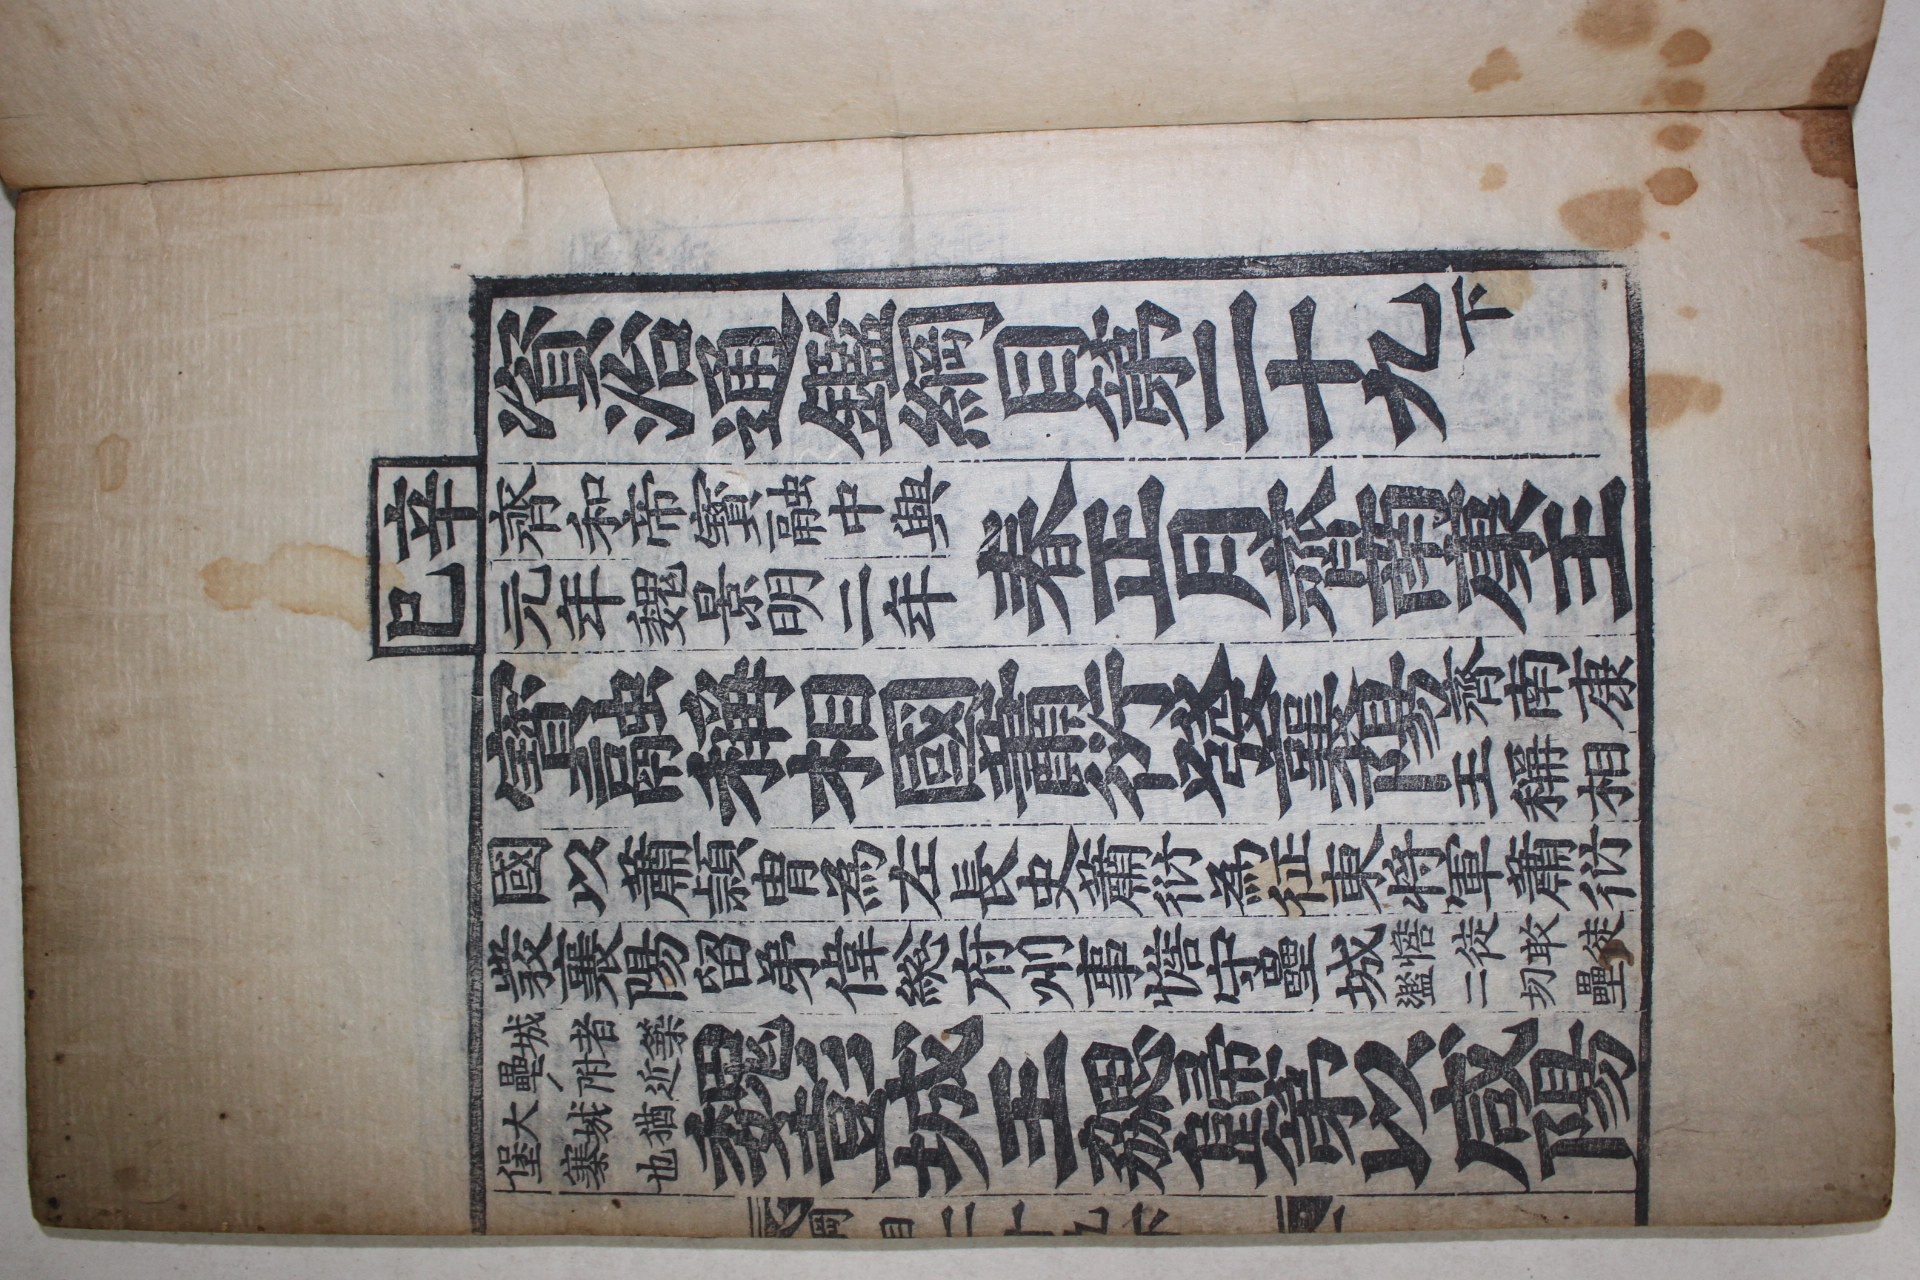 辛巳
資治通鑑綱目第二十九下
齊和帝寶融中興
元年魏景明二年
春正月齊南康王
寶融稱相國蕭衍發襄陽
齊南康
王稱相
國以蕭穎冑為左長史蕭衍為征東將軍蕭衍
發襄陽留弟偉総府州事憺守壘城
憺徒敢徒
濫二切壘
城者築
壘附近
大城猶
堡寨也
魏彭城王勰歸第以咸陽
綱目二十九下